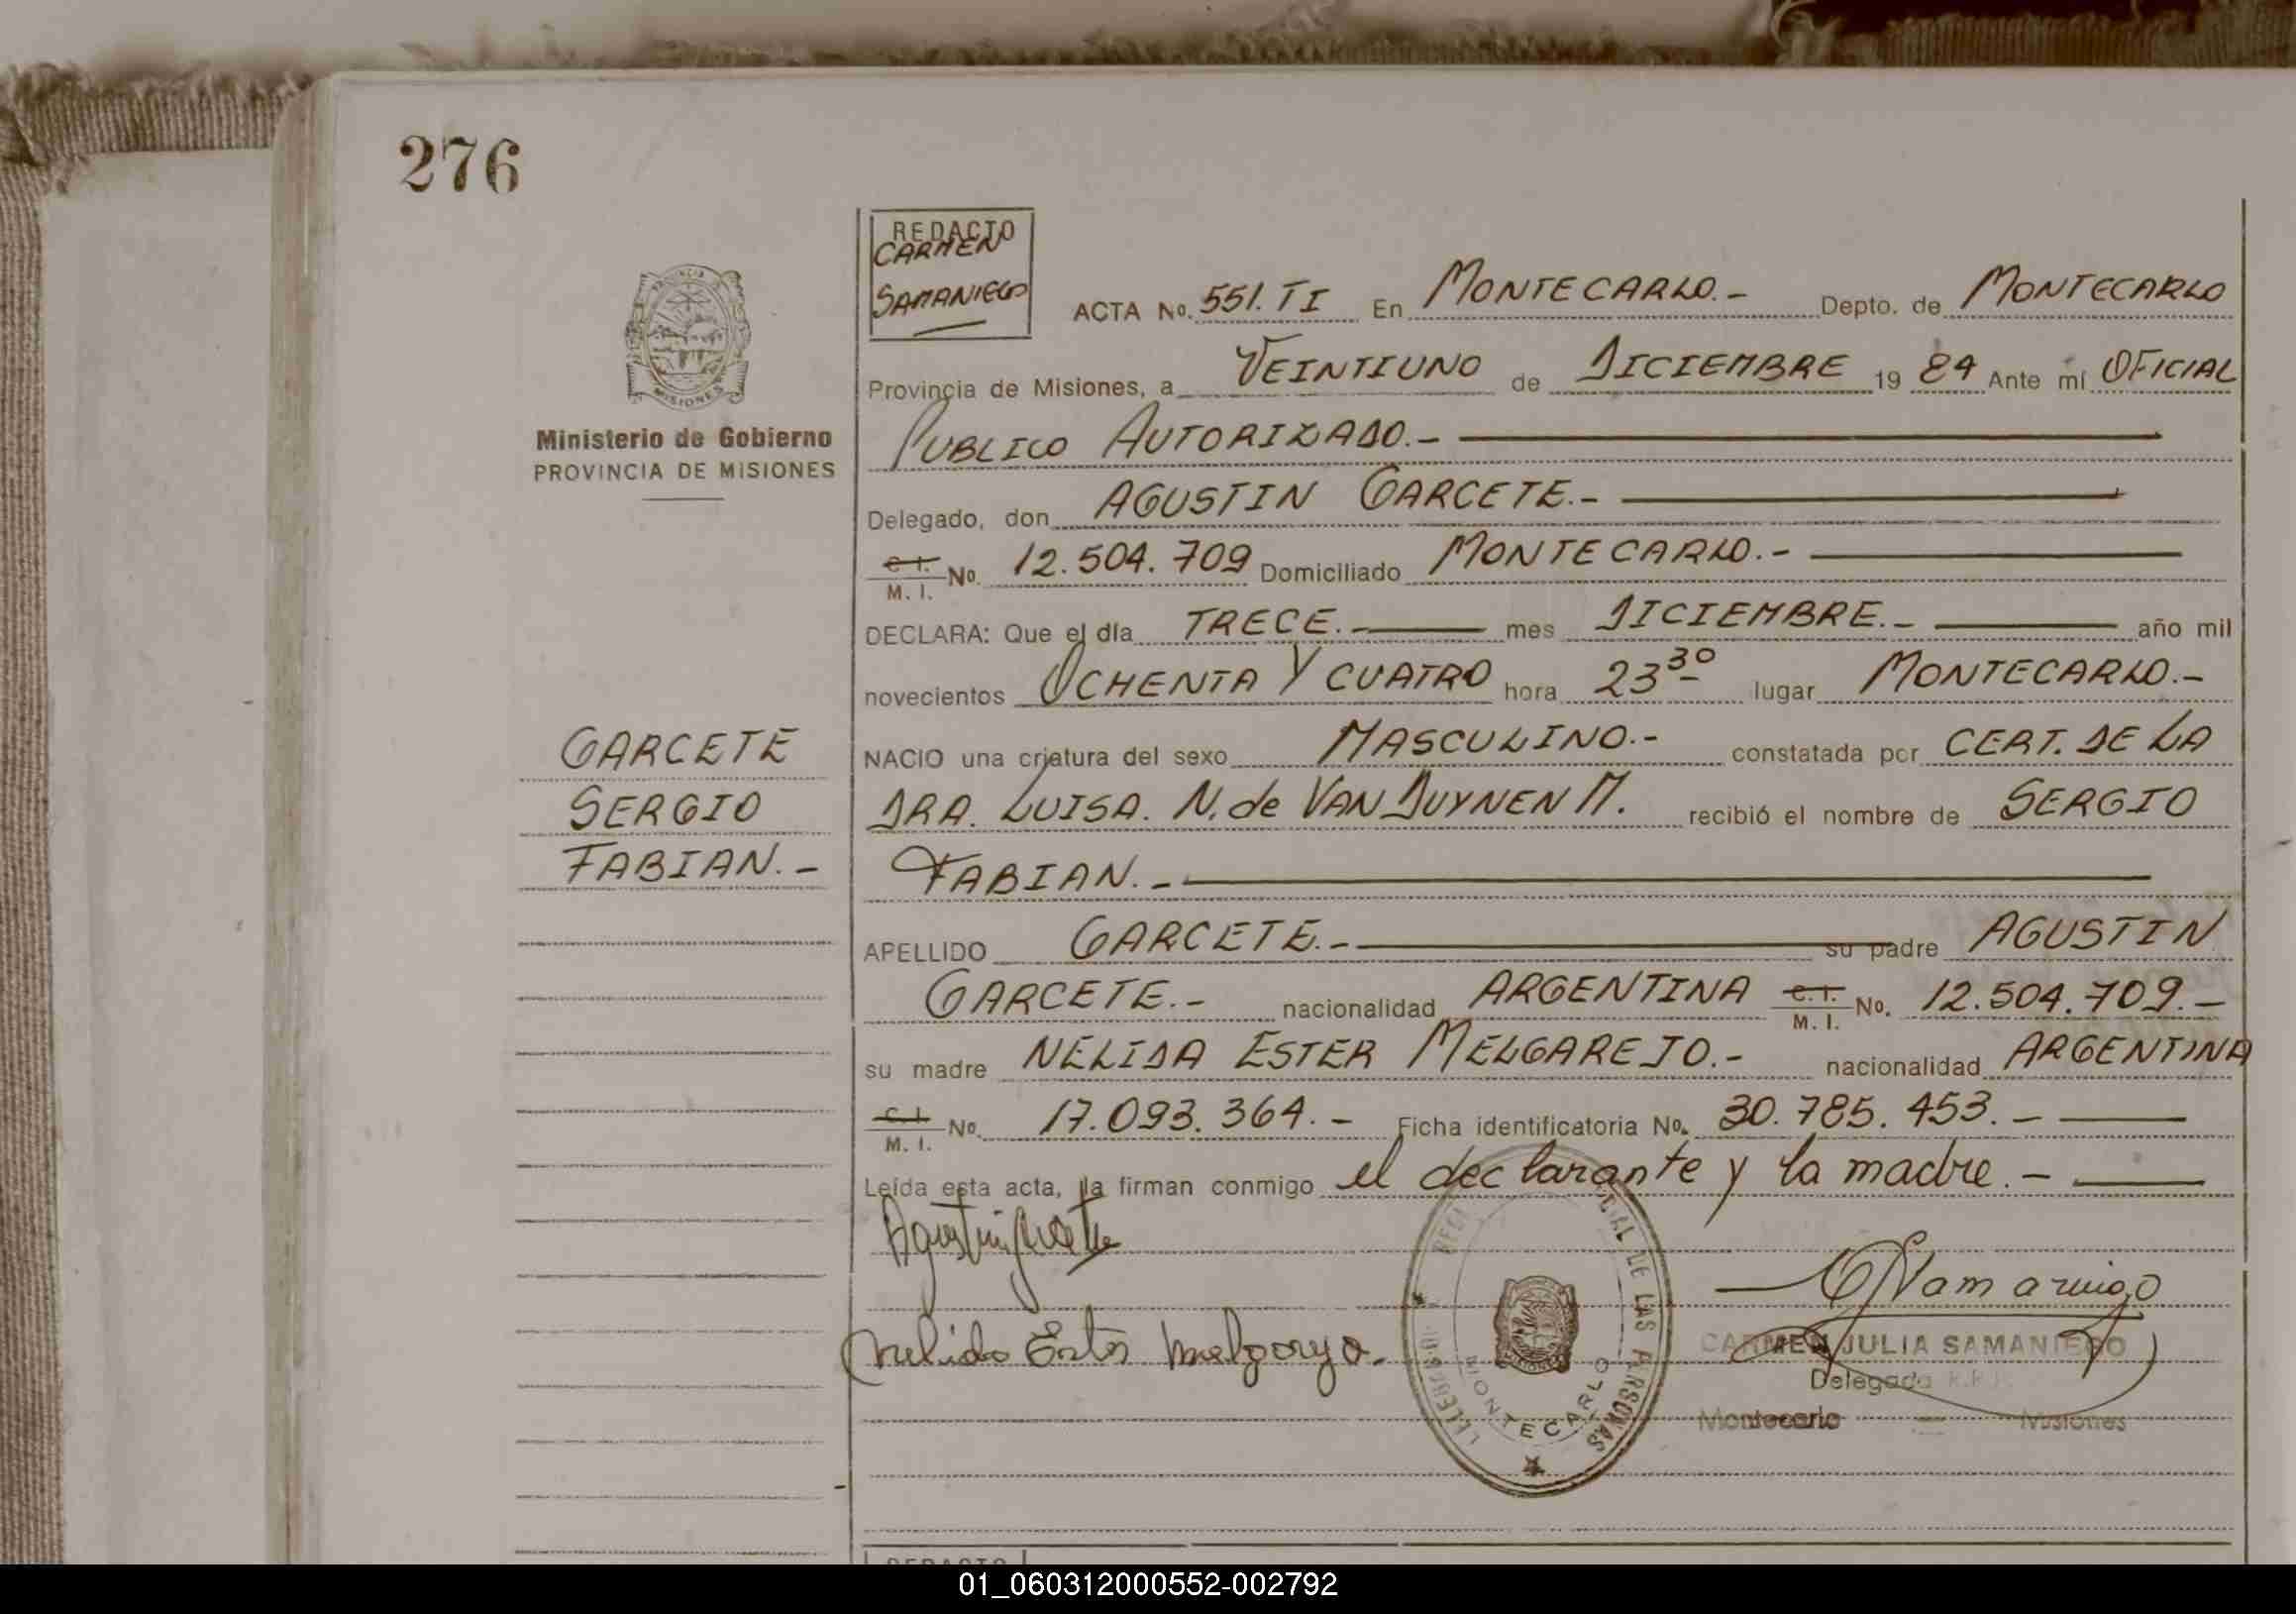 276
REDACTO
CARMEN
SAMANIEGO
ACTA No. 551. TI En MONTECARLO.- Depto. de MONTECARLO
PROVINCIA
MISIONES
Provincia de Misiones, a VEINTIUNO de DICIEMBRE 19 84 Ante mí OFICIAL
Ministerio de Gobierno
PROVINCIA DE MISIONES
PUBLICO AUTORIZADO.-
Delegado, don AGUSTIN GARCETE.-
C.I. M.I. No. 12.504.709 Domiciliado MONTECARLO.-
DECLARA: Que el día TRECE.- mes DICIEMBRE.- año mil
novecientos OCHENTA Y CUATRO hora 23 30 lugar MONTECARLO.-
GARCETE
SERGIO
FABIAN.-
NACIO una criatura del sexo MASCULINO.- constatada por CERT. DE LA
DRA. LUISA. N. de VAN DUYNEN M. recibió el nombre de SERGIO
FABIAN.-
APELLIDO GARCETE.- su padre AGUSTIN
GARCETE.- nacionalidad ARGENTINA C.I. M.I. No. 12.504.709.-
su madre NELIDA ESTER MELGAREJO.- nacionalidad ARGENTINA
C.I. M.I. No. 17.093.364.- Ficha identificatoria No. 30.785.453.-
Leída esta acta, la firman conmigo el declarante y la madre.-
Agustin Garcete
Nelida Ester Melgarejo.
DE LAS PERSONAS
MONTECARLO
CARMEN JULIA SAMANIEGO
Delegada
Montecarlo - Misiones
REDACTO
01_060312000552-002792